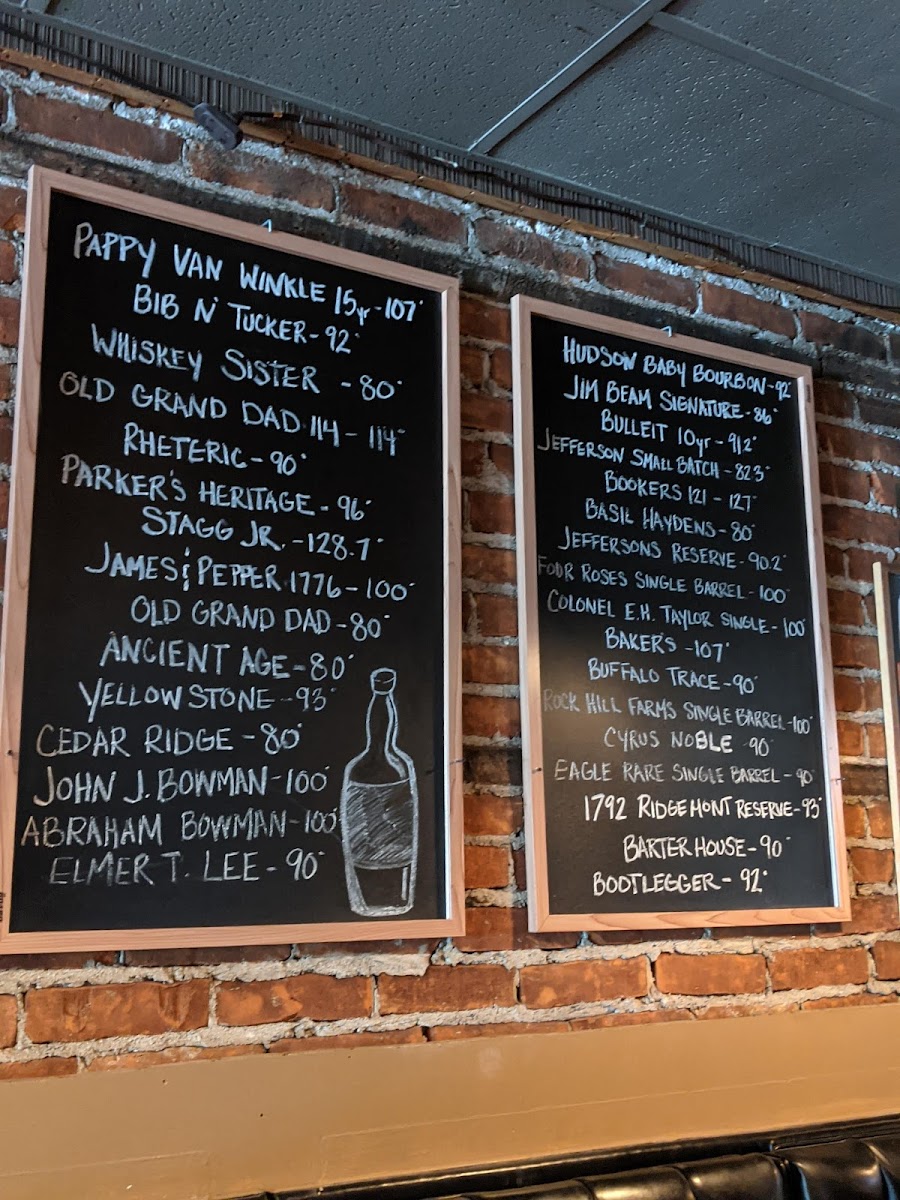 PAPPY VAN WINKLE 15yr - 107°
BIB N' TUCKER - 92°
WHISKEY SISTER - 80°
OLD GRAND DAD 114 - 114°
RHETERIC - 90°
PARKER'S HERITAGE - 96°
STAGG JR. - 128.7°
JAMES & PEPPER 1776 - 100°
OLD GRAND DAD - 80°
ANCIENT AGE - 80°
YELLOWSTONE - 93°
CEDAR RIDGE - 80°
JOHN J. BOWMAN - 100°
ABRAHAM BOWMAN - 100°
ELMER T. LEE - 90°
HUDSON BABY BOURBON - 92°
JIM BEAM SIGNATURE - 86°
BULLEIT 10yr - 91.2°
JEFFERSON SMALL BATCH - 82.3°
BOOKERS 121 - 127°
BASIL HAYDENS - 80°
JEFFERSONS RESERVE - 90.2°
FOUR ROSES SINGLE BARREL - 100°
COLONEL E.H. TAYLOR SINGLE - 100°
BAKER'S - 107°
BUFFALO TRACE - 90°
ROCK HILL FARMS SINGLE BARREL - 100°
CYRUS NOBLE - 90°
EAGLE RARE SINGLE BARREL - 90°
1792 RIDGEMONT RESERVE - 93°
BARTER HOUSE - 90°
BOOTLEGGER - 92°